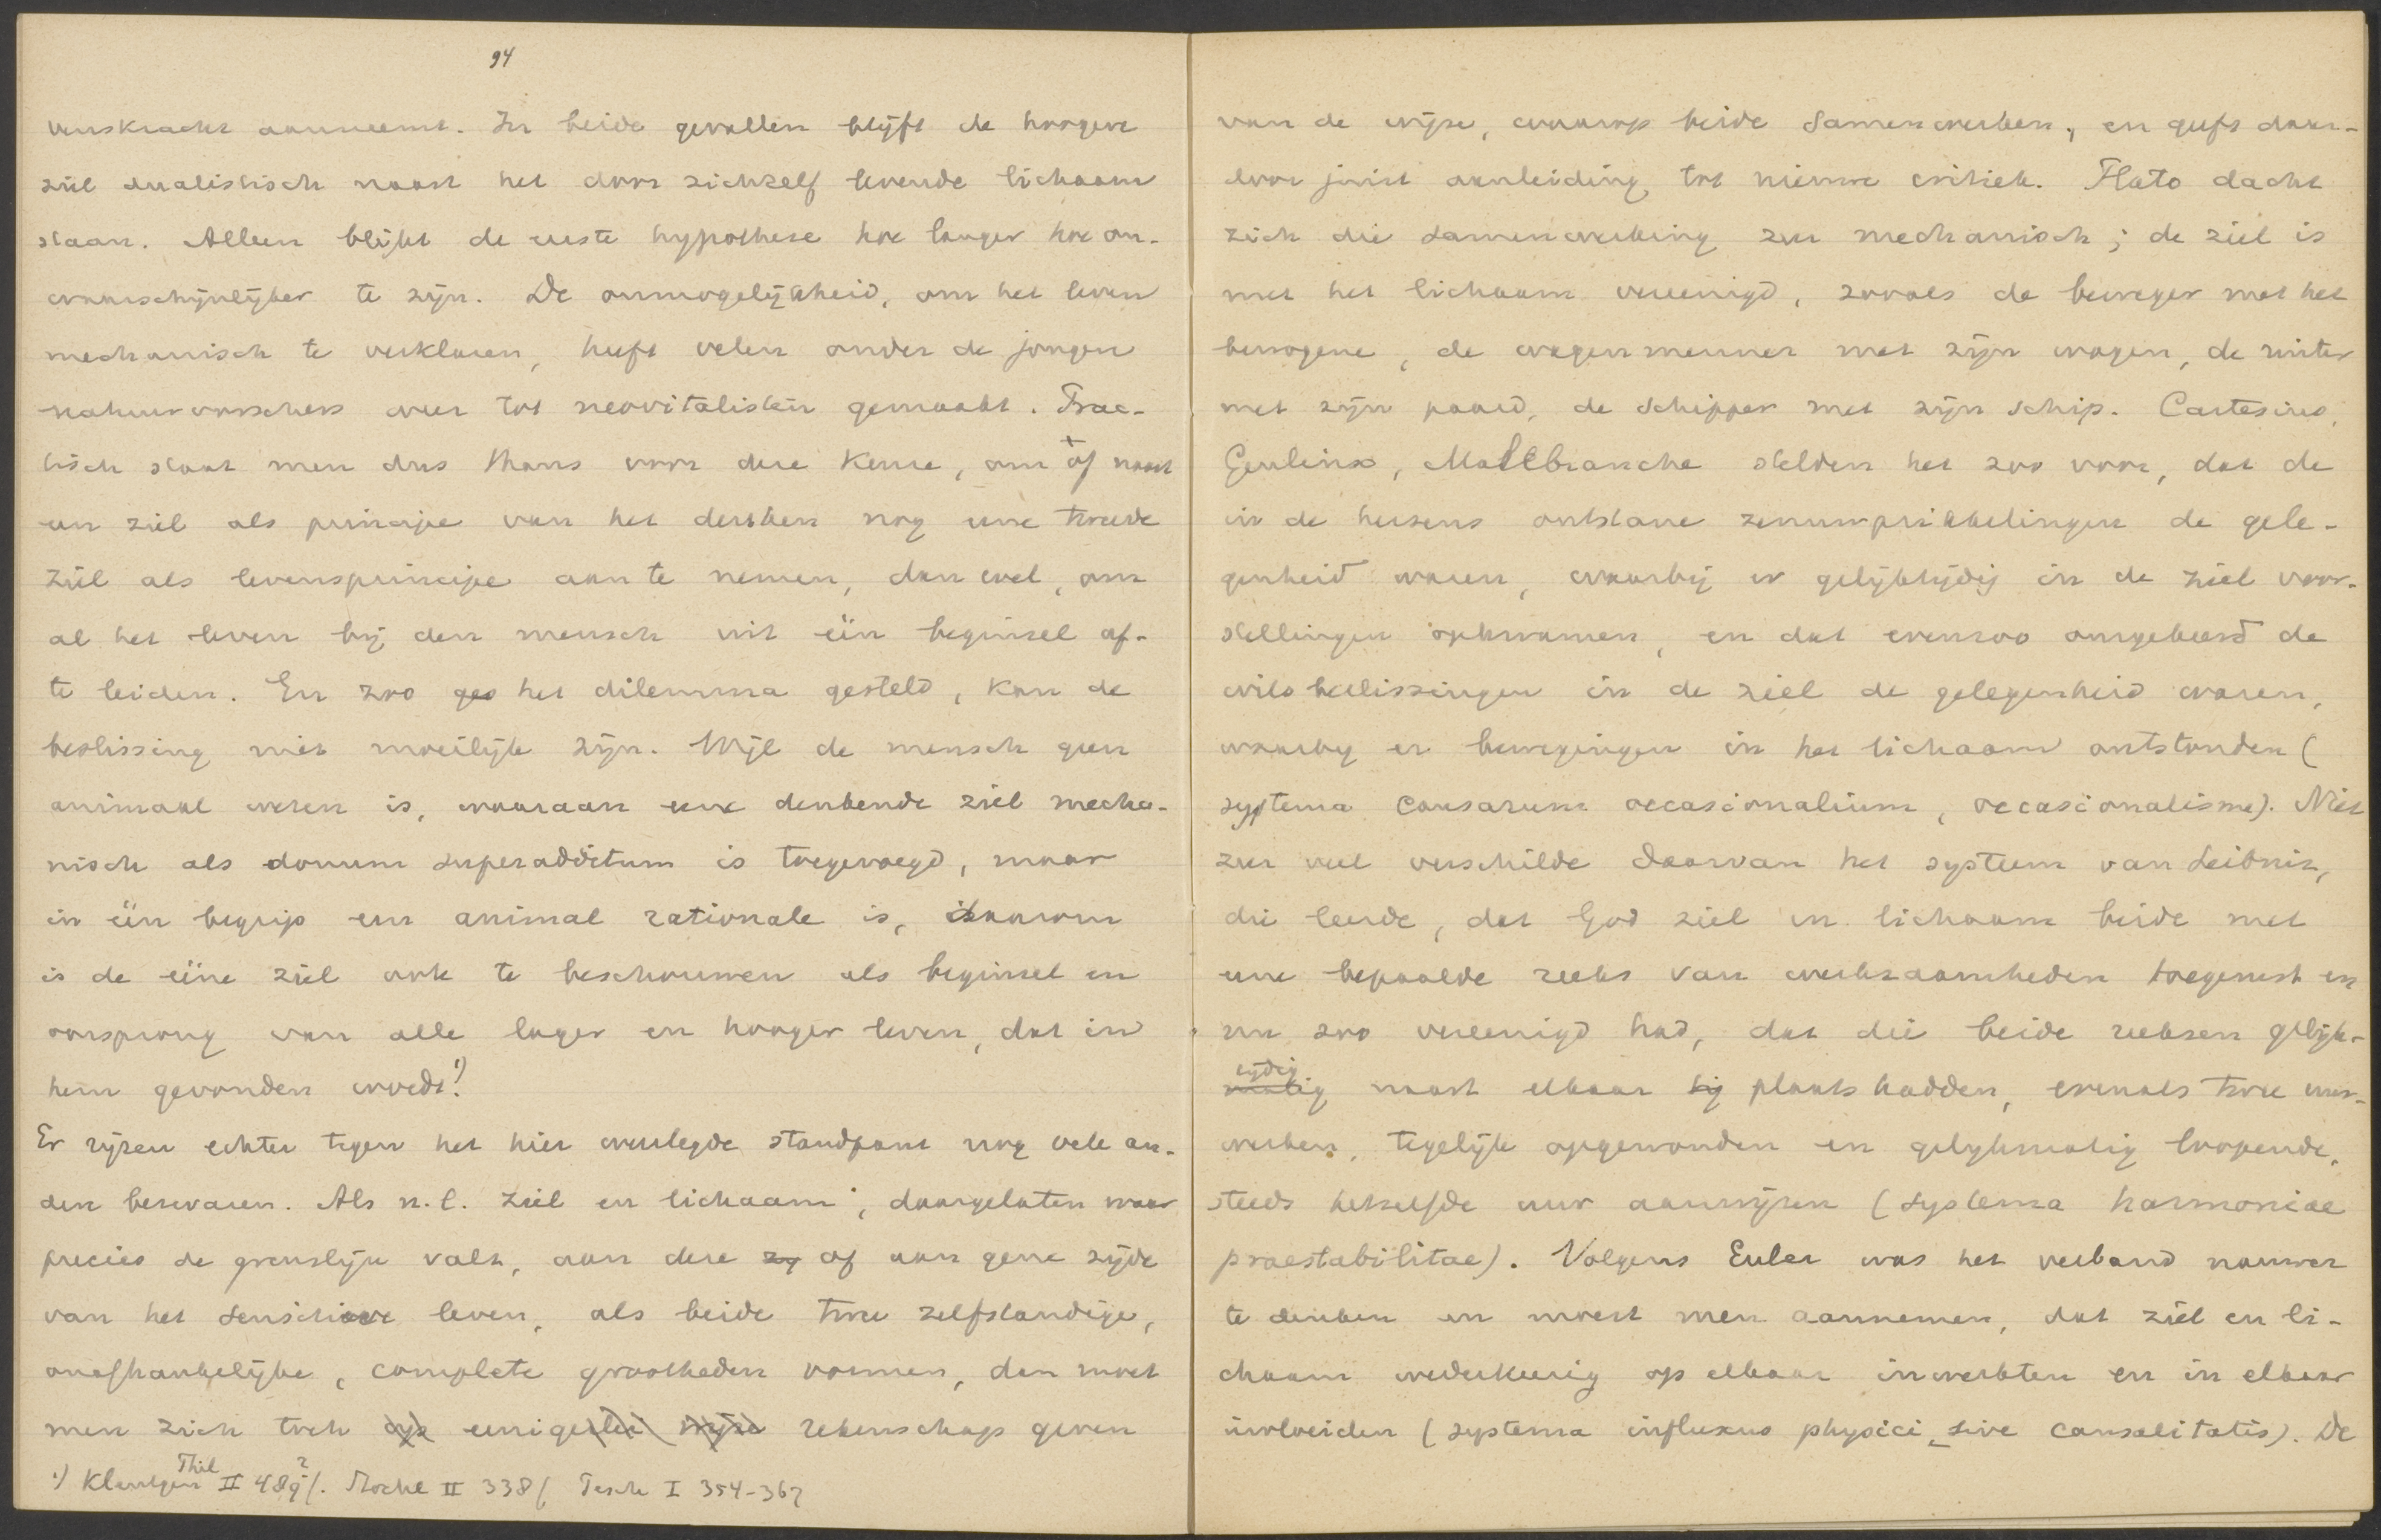 94
venskracht aanneemt. In beide gevallen blijft de hoogere
ziel dualistisch naast het door zichzelf levende lichaam
staan. Alleen blijkt de eerste hypothese hoe langer hoe on-
waarschijnlijker te zijn. De onmogelijkheid, om het leven
mechanisch te verklaren, heeft velen onder de jongere
natuurvorschers weer tot neovitalisten gemaakt. Prac-
tisch staat men dus thans voor deze keuze, om òf naast
een ziel als principe van het denken nog eene tweede
ziel als levensprincipe aan te nemen, dan wel, om
al het leven bij den mensch uit één beginsel af-
te leiden. En zoo geo het dilemma gesteld, kan de
beslissing niet moeilijk zijn. Wijl de mensch geen
animaal wezen is, waaraan eene denkende ziel mecha-
nisch als donum superadditum is toegevoegd, maar
in één begrip een animal rationale is, daarom
is de ééne ziel ook te beschouwen als beginsel en
oorsprong van alle lager en hooger leven, dat in
hem gevonden wordt.¹)
Er rijzen echter tegen het hier weerlegde standpunt nog vele an-
dere bezwaren. Als n.l. ziel en lichaam, daargelaten waar
precies de grenslijn valt, aan deze zy of aan gene zijde
van het sensitieve leven, als beide twee zelfstandige,
onafhankelijke, complete grootheden vormen, dan moet
men zich toch op eenigerlei wijze rekenschap geven
¹) Kleutgen Phil II 489²/. Mache II 338/, Pesch I 354-367
van de wijze, waarop beide samenwerken, en geeft daar-
door juist aanleiding tot nieuwe critiek. Plato dacht
zich die samenwerking zeer mechanisch; de ziel is
met het lichaam vereenigd, zooals de beweger met het
bewogene, de wagenmenner met zijn wagen, de ruiter
met zijn paard, de schipper met zijn schip. Cartesius,
Geulinx, Mallebranche stelden het zoo voor, dat de
in de hersens ontstane zenuwprikkelingen de gele-
genheid waren, waarbij er gelijktijdig in de ziel voor-
stellingen opkwamen, en dat evenzoo omgekeerd de
wilsbeslissingen in de ziel de gelegenheid waren,
waarbij er bewegingen in het lichaam ontstonden (
systema causarum occasionalium, occasionalisme). Niet
zeer veel verschilde daarvan het systeem van Leibniz,
die leerde, dat God ziel en lichaam beide met
eene bepaalde reeks van werkzaamheden toegerust en
en zoo vereenigd had, dat die beide reeksen gelijk-
tijdig
matig naast elkaar bij plaats hadden, evenals twee uur-
werken, tegelijk opgewonden en gelijkmatig loopende,
steeds hetzelfde uur aanwijzen (systema harmoniae
praestabilitae). Volgens Euler was het verband nauwer
te denken en moest men aannemen, dat ziel en li-
chaam wederkeerig op elkaar inwerkten en in elkaar
invloeiden (systema influxus physici, sive causalitatis). De